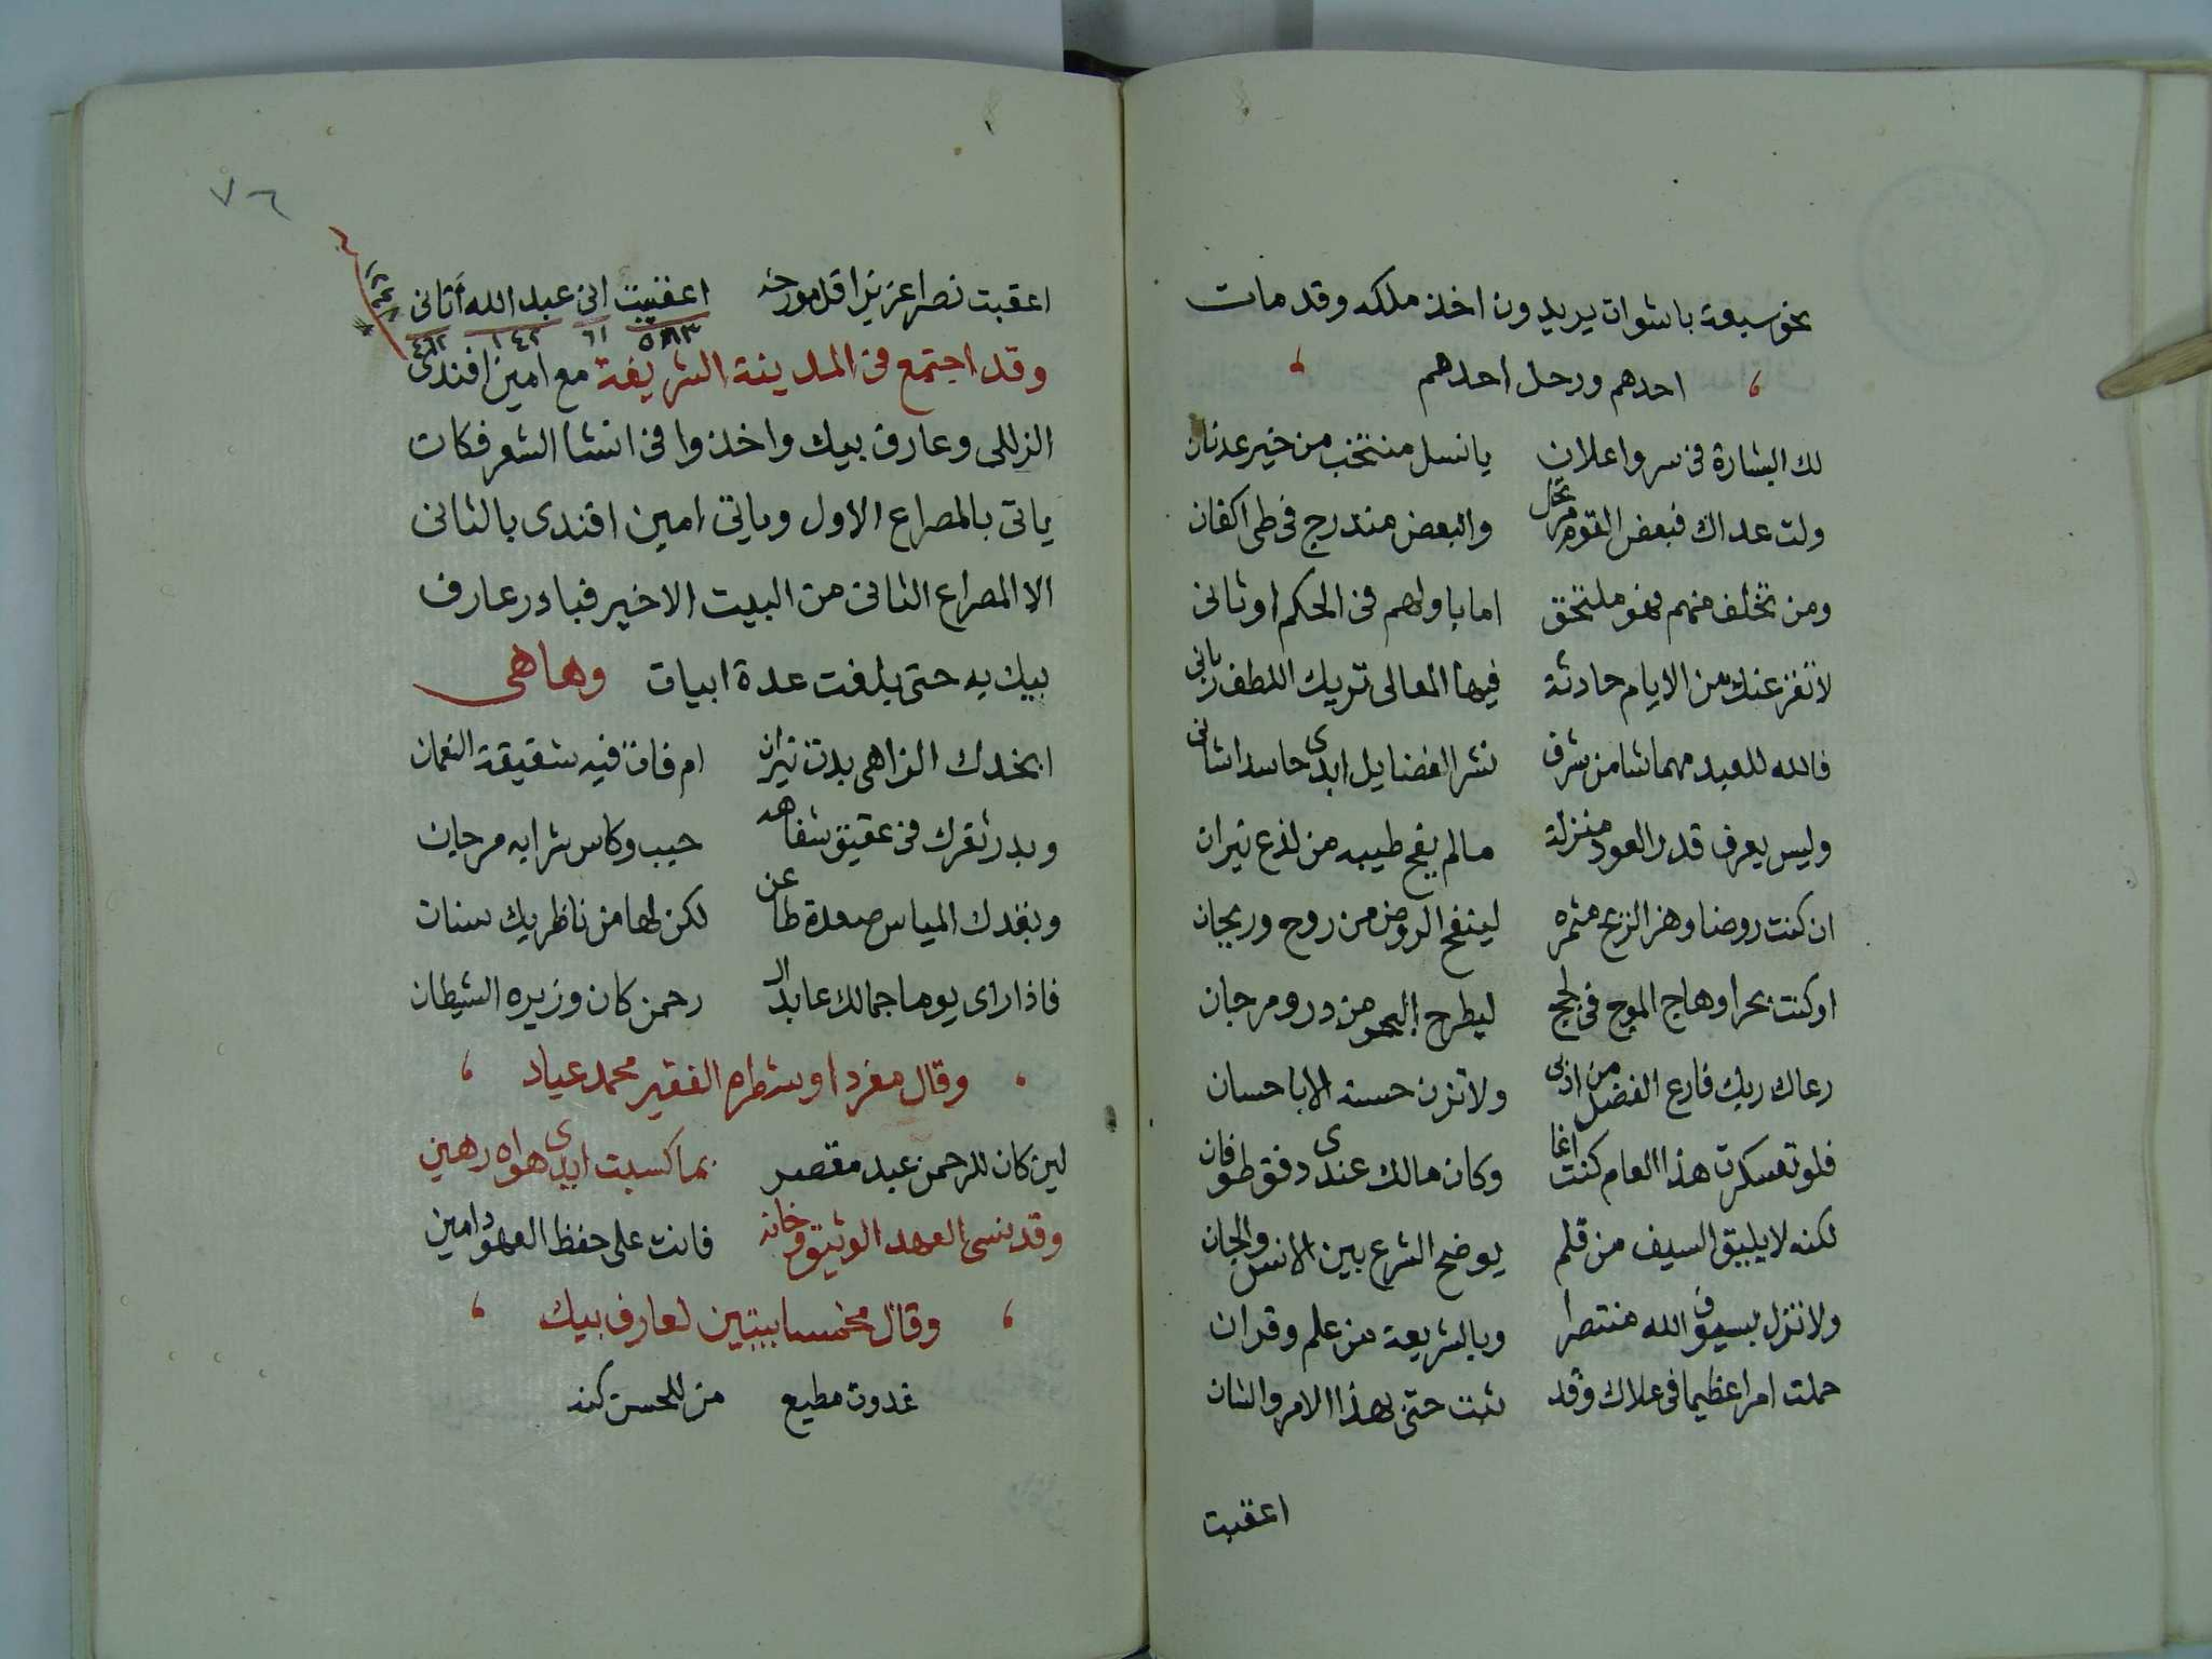 نحو سبعة باشوات يريدون اخذ ملكه وقد مات
احدهم ورحل احدهم
لك البشارة فى سر واعلان يانسل منتخب من خير عدنان
ولت عداك فبعض القوم مرتحل والبعض مندرج فى طى اكفان
ومن تخلف منهم فهو ملتحق اما باولهم فى الحكم او ثانى
لا تفزعنك من الايام حادثة فيها المعالى تريك اللطف ربانى
فالله للعبد مهما شا من شرف نشر الفضايل ابدى حاسدا شانى
وليس يعرف قدر العود منزلة مالم يفح طيبه من لذع نيران
ان كنت روضا وهز الريح مثمره لينفح الروض من روح وريحان
او كنت بحرا وهاج الموج فى لجج ليطرح البحر من در ومرجان
رعاك ربك فارع الفضل من ادبى ولا تزن حسنه الا باحسان
فلو تعسكرت هذا العام كنت اغا وكان مالك عندى دفق طوفان
لكنه لا يليق السيف من قلم يوضح الشرع بين الانس والجان
ولا تزل بسيوف الله منتصرا وبالشريعة من علم وقران
حملت امرا عظيما فى علاك وقد ثبت حتى لهذا الامر والشان
اعقبت
٧٦
اعقبت نصرا عزيزا قل مورخه اعقبت انى عبد الله أتانى
٥٧٣ ٦١ ١٤٢ ٤٦٢
وقد اجتمع فى المدينة الشريفة مع امين افندى
الزللى وعارف بيك واخذوا فى انشا الشعر فكان
ياتى بالمصراع الاول وياتى امين افندى بالثانى
الا المصراع الثانى من البيت الاخير فبادر عارف
بيك به حتى بلغت عدة ابيات وهاهى
ابخدك الزاهى بدت نيران ام فاق فيه شقيقة النعمان
وبدر ثغرك فى عقيق شفاهه حبب وكاس شرابه مرجان
وبقدك المياس صعدة طاعن لكن لها من ناظريك سنان
فاذا راى يوما جمالك عابد الرحمن كان وزيره الشيطان
وقال مفردا وشطره الفقير محمد عياد
لين كان للرحمن عبد مقصر بما كسبت ايدى هواه رهين
وقد نسى العهد الوثيق وخانه فانت على حفظ العهود امين
وقال مخمسا بيتين لعارف بيك
غدوت مطيع من للحسن كنه